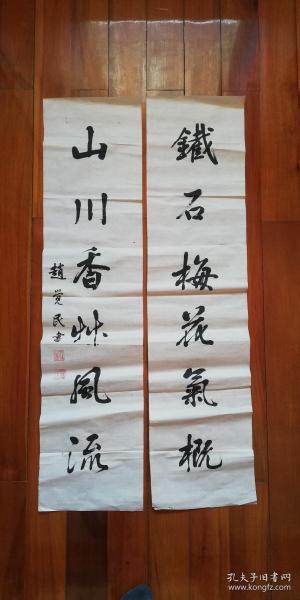 鐵石梅花氣概
山川香艸風流
趙覺民書
孔夫子旧书网
www.kongfz.com